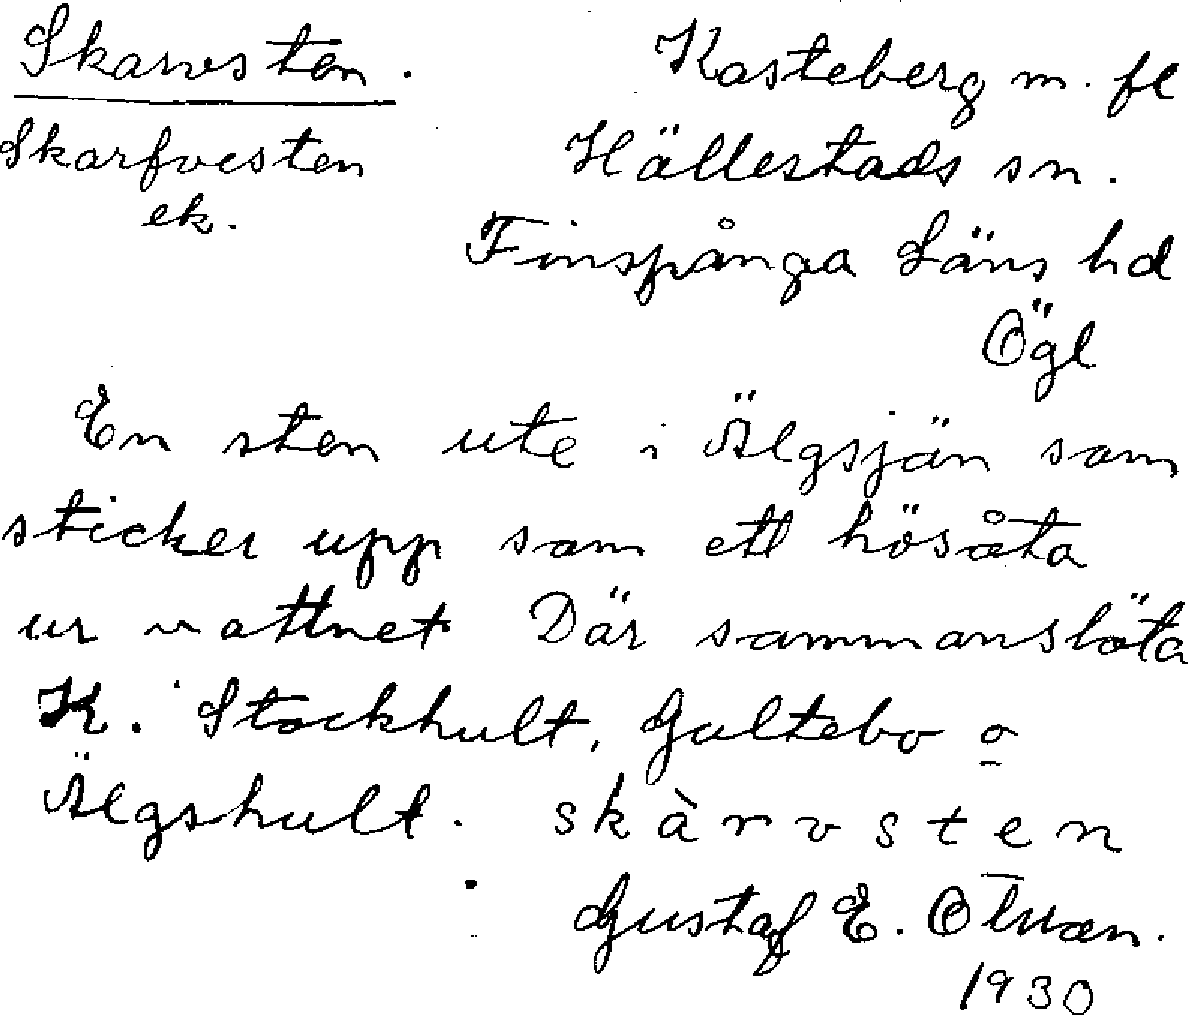 Skarvsten. Kasteberg m. fl
Skarfvesten Hällestads sn.
ek. Finspånga Läns hd
Ögl
En sten ute i Älgsjön som
sticker upp som ett hösåta
ur vattnet Där sammanslöta
K. Stockhult, Galtebo o
Älgshult. skàrvsten
Gustaf E.
1930